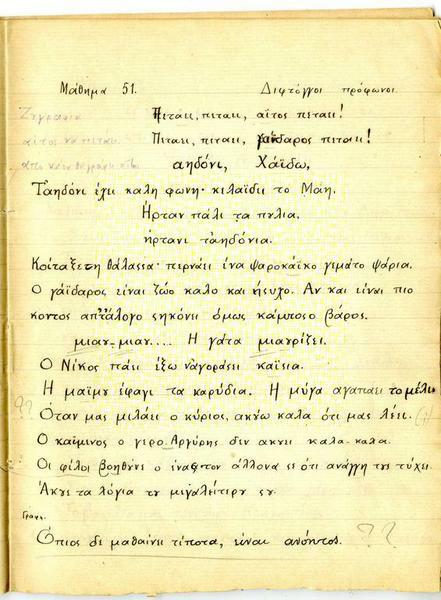 Μάθημα 51. Διφτόγγοι πρόφωνοι
Ζηγραφια Πεταει, πεταει, αἴτος πεταει!
αἴτος να πεταει. Πεταει, πεταει, γάϊδαρος πεταει!
αηδόνι, Χάϊδω,
Τἀηδόνι έχει καλη φωνη· κιλαϊδει το Μαη.
Ηρταν πάλι τα πυλια,
ηρτανι τἀηδόνια.
Κοίταξε τη θάλασσα· περνάει ένα ψαροκάϊκο γεμάτο ψάρια.
Ο γάϊδαρος είναι ζώο καλο και ήσυχο. Αν και είναι πιο
κοντος απτἄλογο σηκόνει όμως κάμποσο βάρος.
μιαυ-μιαυ.... Η γάτα μιαυρίζει.
Ο Νίκος πάει έξω νἀγοράσει καϊσια.
Η μαϊμυ έφαγι τα καρύδια. Η μύγα αγαπαει το μέλι.
?? Οταν μας μιλάει ο κύριος, ακυω καλα ότι μας λεει.
Ο καϊμινος ο γερο Αργύρης δεν ακυει καλα-καλα.
Οι φίλοι βοηθυνε ο ένας τον άλλονα σε ότι ανάγγη τυς τύχει.
Άκυε τα λόγια τυ μιγαλείτερυ συ.
Γραπτ.
Οπιος δε μαθαινει τίποτα, είναι ανόητος. ??